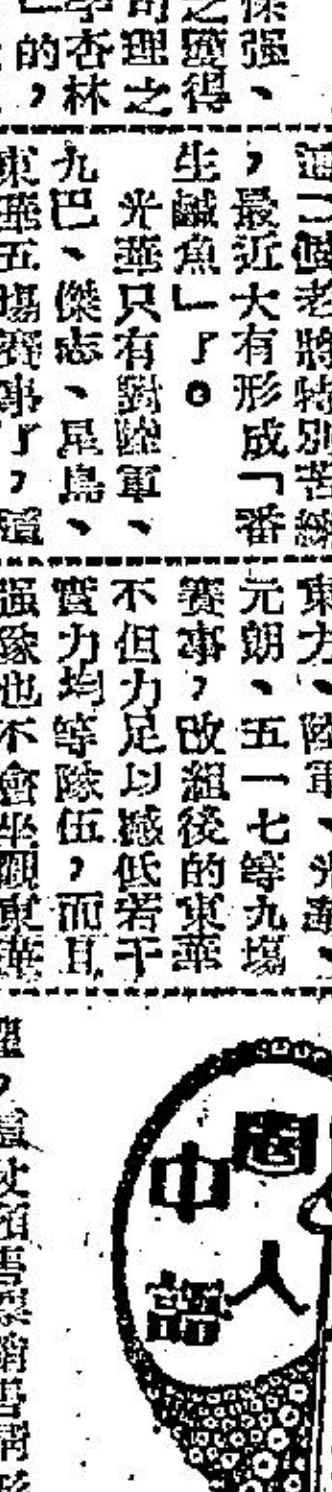 傑强、
之獲得
司理之
學杏林
巴的，
這二個老將特別苦練
，最近大有形成「番
生鹹魚」了。
光華只有對陸軍、
九巴、傑志、星島、
東華五塲賽事了，這
東方、陸軍、光華、
元朗、五一七等九塲
賽事，改組後的東華
不但力足以撼低若干
實力均等隊伍，而且
强隊也不會坐觀東華
圈
人
中
語